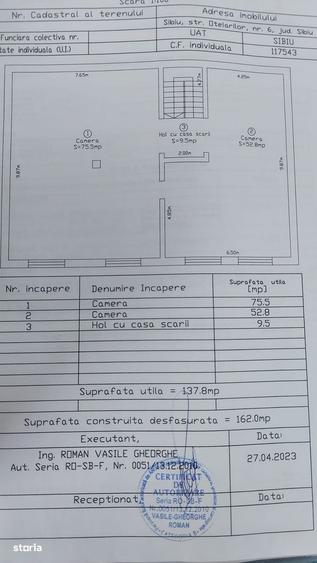 Scara 1:100
Nr. Cadastral al terenului
Adresa imobilului
Sibiu, str. Otelarilor, nr. 6, jud. Sibiu
Funciara colectiv nr.
UAT
SIBIU
tate individuala (U.I.)
C.F. individuala
117543
7.65m
4.25m
4.77m
1
Camera
S=75.5mp
3
Hol cu casa scarii
S=9.5mp
2
Camera
S=52.8mp
2.00m
9.87m
9.87m
4.95m
6.50m
Nr. incapere
Denumire Incapere
Suprafata utila
[mp]
1
Camera
75.5
2
Camera
52.8
3
Hol cu casa scarii
9.5
Suprafata utila = 137.8mp
Suprafata construita desfasurata = 162.0mp
Executant,
Data:
Ing. ROMAN VASILE GHEORGHE
Aut. Seria RO-SB-F, Nr. 0051/13.12.2010
27.04.2023
CERTIFICAT
DE
AUTORIZARE
Seria RO-SB-F
Nr.0051/13.12.2010
VASILE-GHEORGHE
ROMAN
Receptionat,
Data:
storia